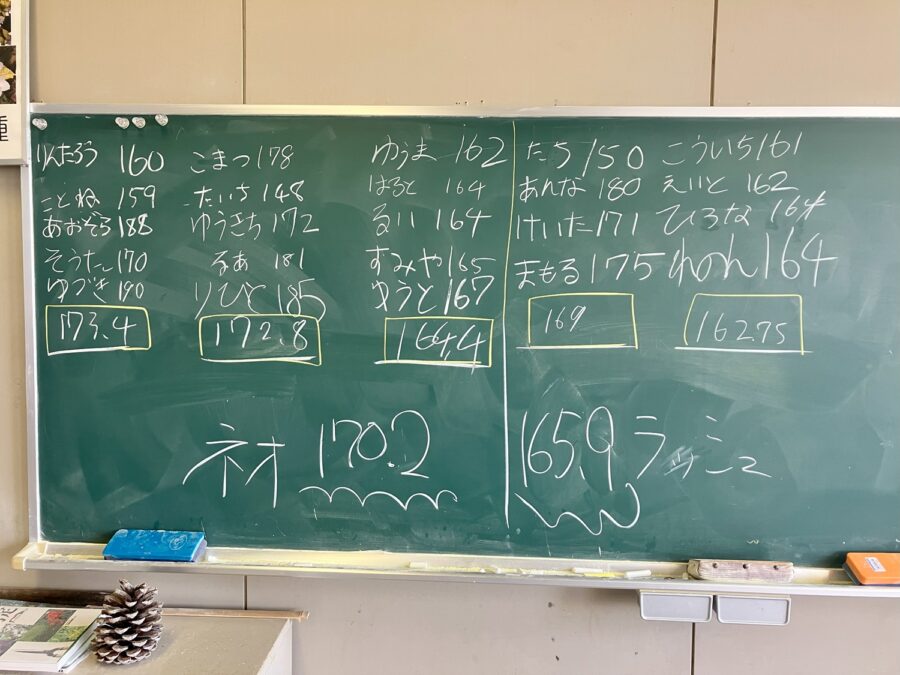 種
りんたろう 160
ことね 159
あおぞら 188
そうたん 170
ゆづき 190
173.4
こまつ 178
たいち 148
ゆうきち 172
るあ 181
りひと 185
172.8
ゆうま 162
はると 164
るい 164
すみや 165
ゆうと 167
164.4
ネオ 170.2
たち 150
あんな 180
けいた 171
まもる 175
169
こういち 161
えいと 162
ひろな 164
わかん 164
162.75
165.9 ラッシュ